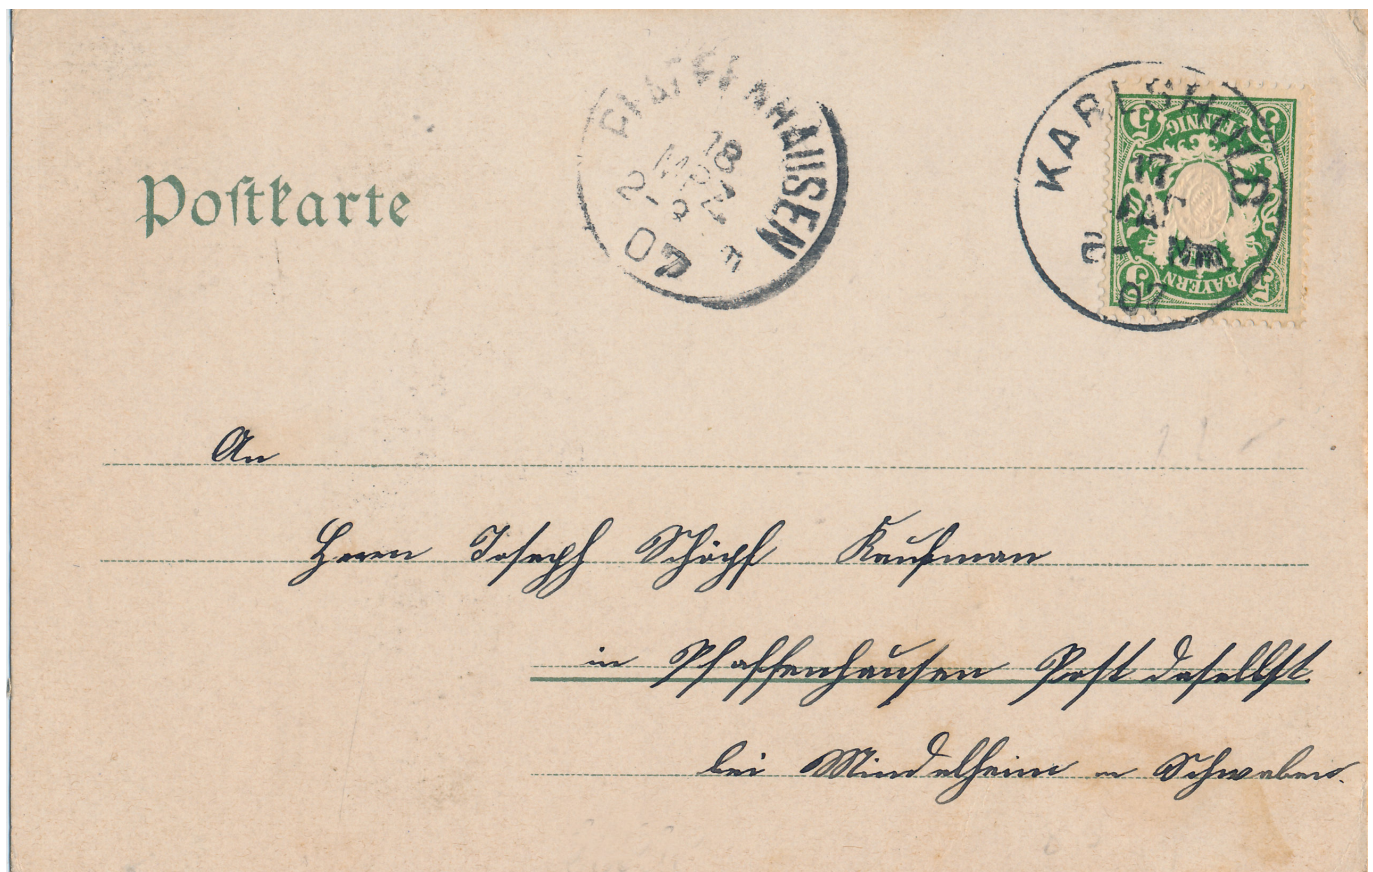 Postkarte
PFAFFENHAUSEN
18
MRZ
07
KARLSHULD
17
Nm
07
5 PFENNIG 5
5 BAYERN 5
An
Herrn Joseph Schöpf Kaufman
in Pfaffenhausen Post daselbst
bei Mindelheim in Schwaben.